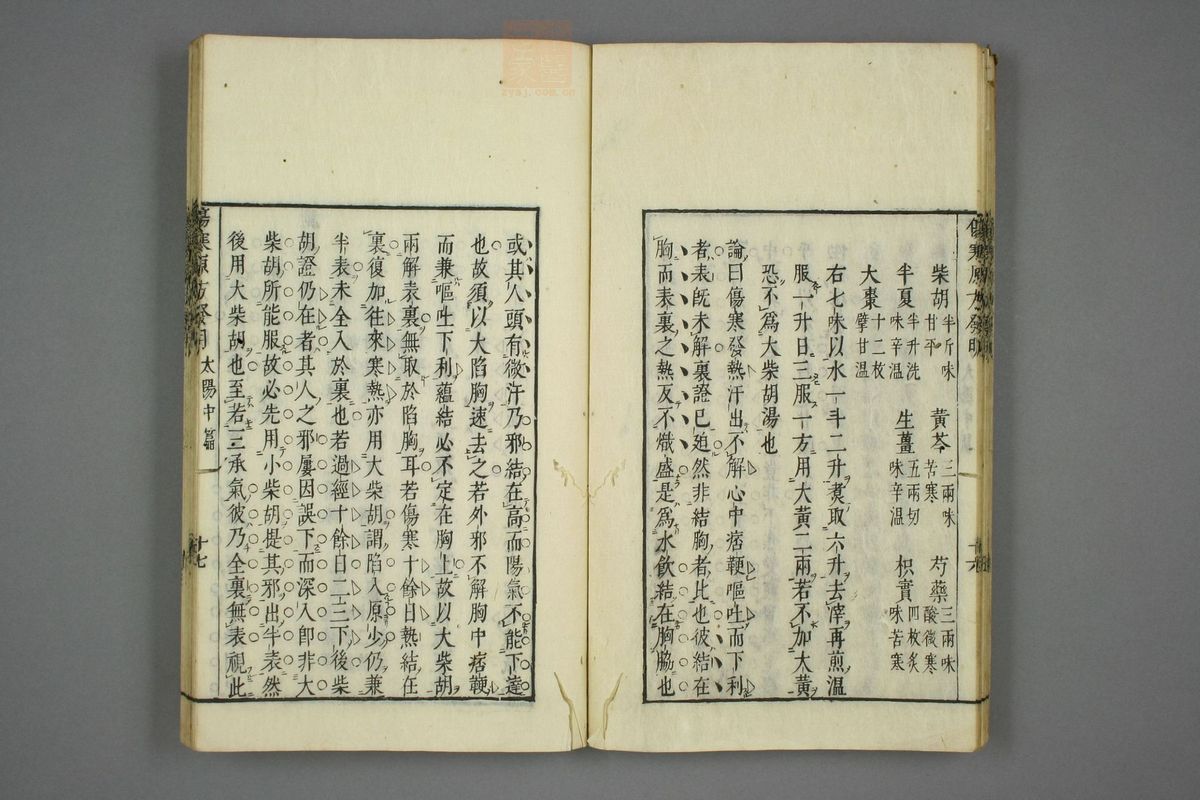 傷寒原方發明
柴胡半斤味甘平　黃芩三兩味苦寒　芍藥三兩味酸微寒
半夏半升洗味辛溫　生薑五兩切味辛溫　枳實四枚炙味苦寒
大棗十二枚擘甘溫
右七味以水一斗二升煑取六升去滓再煎溫
服一升日三服一方用大黃二兩若不加大黃
恐不爲大柴胡湯也
論曰傷寒發熱汗出不解心中痞鞕嘔吐而下利
者表既未解裏證已廹然非結胸者比也彼結在
胸而表裏之熱反不熾盛是爲水飲結在胸脇也
或其人頭有微汗乃邪結在高而陽氣不能下達
也故須以大陷胸速去之若外邪不解胸中痞鞕
而兼嘔吐下利蘊結必不定在胸上故以大柴胡
兩解表裏無取於陷胸耳若傷寒十餘日熱結在
裏復加往來寒熱亦用大柴胡謂陷入原少仍兼
半表未全入於裏也若過經十餘日二三下後柴
胡證仍在者其人之邪屢因誤下而深入卽非大
柴胡所能服故必先用小柴胡提其邪出半表然
後用大柴胡也至若三承氣彼乃全裏無表視此
傷寒原方發明　太陽中篇　十七
zysj.com.cn